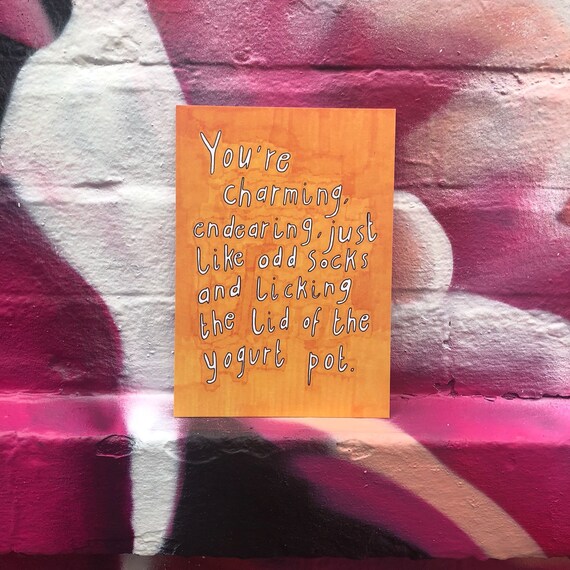 You're
charming,
endearing, just
like odd socks
and licking
the lid of the
yogurt pot.